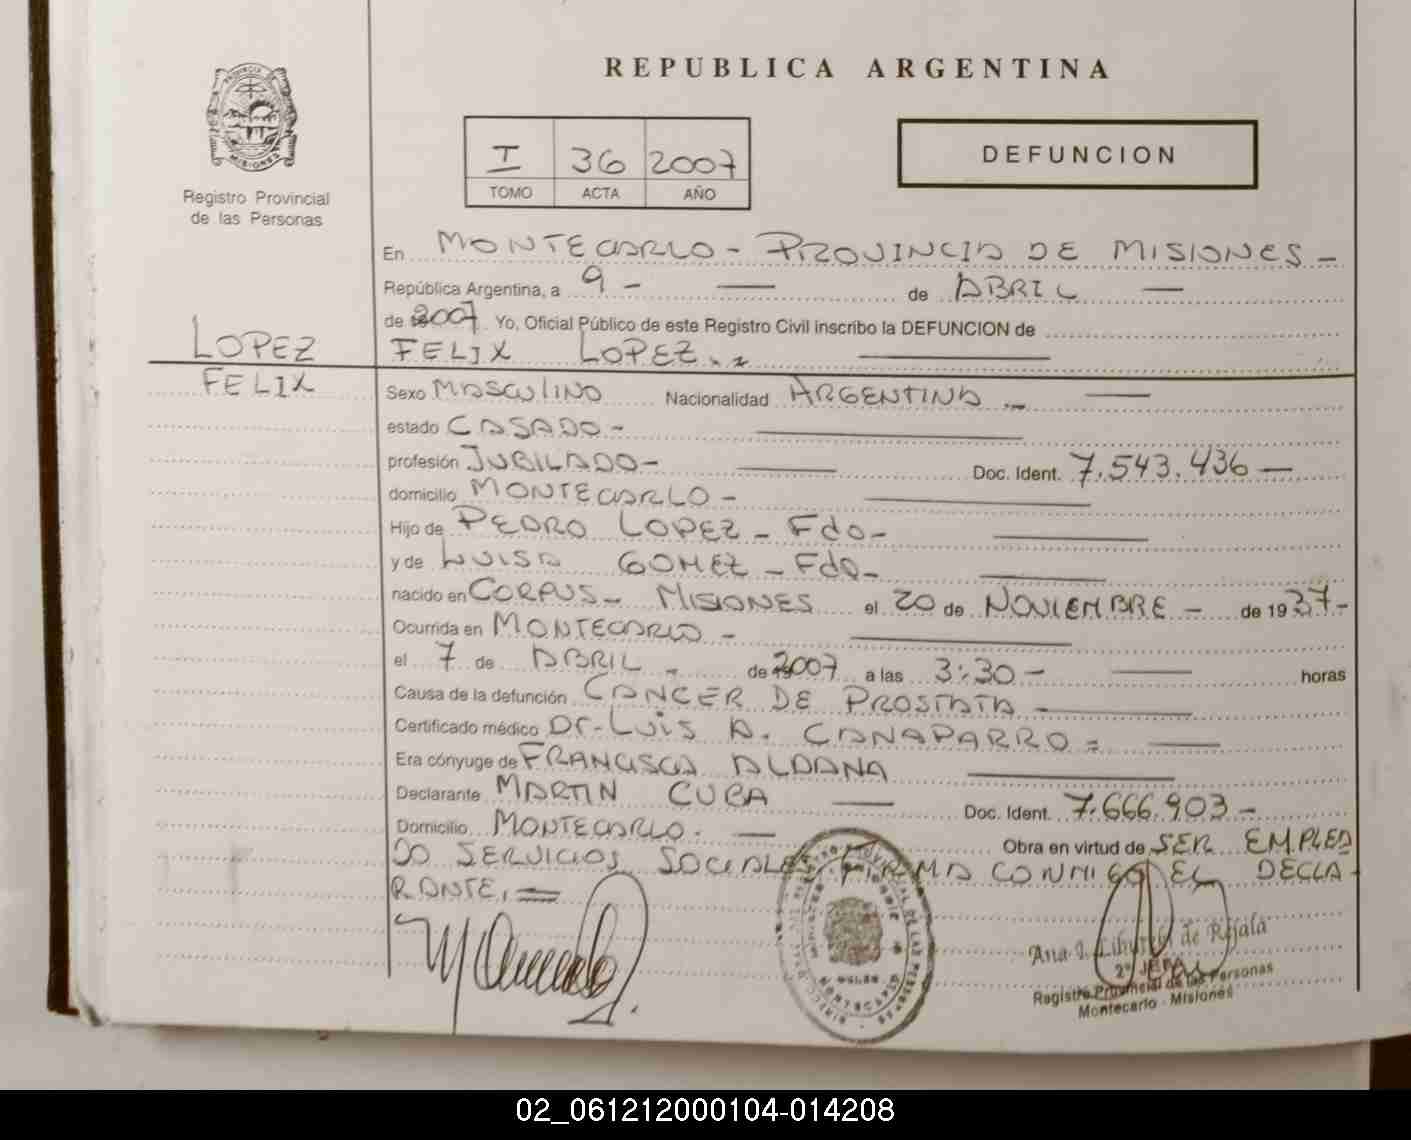 REPUBLICA ARGENTINA
PROVINCIA DE
MISIONES
Registro Provincial
de las Personas
I 36 2007
TOMO ACTA AÑO
DEFUNCION
En MONTECARLO - PROVINCIA DE MISIONES -
República Argentina, a 9 - de ABRIL
de 2007 Yo, Oficial Público de este Registro Civil inscribo la DEFUNCION de
LOPEZ
FELIX LOPEZ.
FELIX
Sexo MASCULINO Nacionalidad ARGENTINA
estado CASADO -
profesión JUBILADO - Doc. Ident. 7.543.436 -
domicilio MONTECARLO -
Hijo de PEDRO LOPEZ - Fdo -
y de LUISA GOMEZ - Fdo -
nacido en CORPUS - MISIONES el 20 de NOVIEMBRE - de 1937 -
Ocurrida en MONTECARLO -
el 7 de ABRIL - de 2007 a las 3:30 - horas
Causa de la defunción CANCER DE PROSTATA -
Certificado médico Dr. LUIS A. CANAPARRO =
Era cónyuge de FRANCISCA ALDANA
Declarante MARTIN CUBA Doc. Ident. 7.666.903 -
Domicilio MONTECARLO. - Obra en virtud de SER EMPLEA
DO SERVICIOS SOCIALES FIRMA CONMIGO EL DECLA-
RANTE. =
Ana I. de Rejala
2º JEFA
Registro Provincial de las Personas
Montecarlo - Misiones
02_061212000104-014208